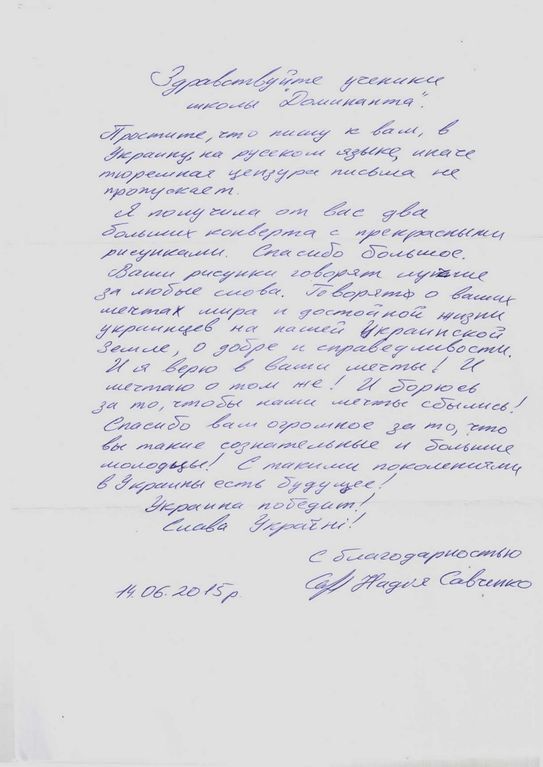 Здравствуйте ученики
школы "Доминанта".
Простите, что пишу к вам, в
Украину, на русском языке, иначе
тюремная цензура письма не
пропускает.
Я получила от вас два
больших конверта с прекрасными
рисунками. Спасибо большое.
Ваши рисунки говорят лучше
за любые слова. Говорят о ваших
мечтах мира и достойной жизни
украинцев на нашей Украинской
Земле, о добре и справедливости.
И я верю в ваши мечты! И
мечтаю о том же! И борюсь
за то, чтобы наши мечты сбылись!
Спасибо вам огромное за то, что
вы такие сознательные и большие
молодцы! С такими поколениями
в Украины есть будущее!
Украина победит!
Слава Україні!
С благодарностью
14.06.2015р. Надія Савченко